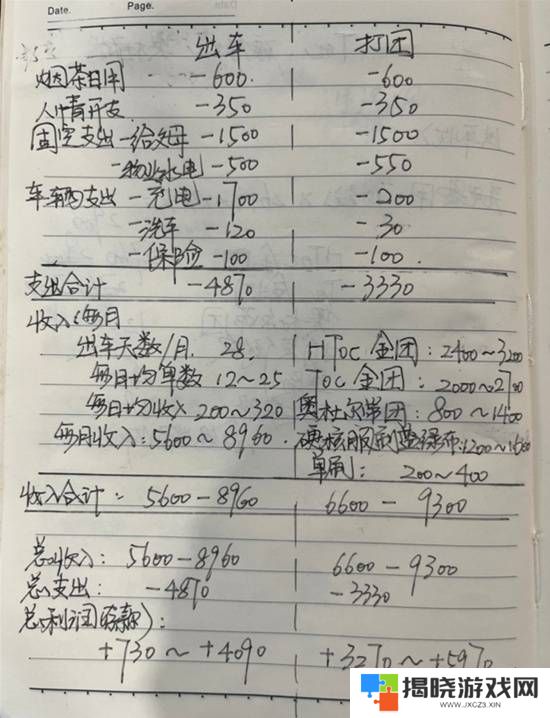 Date. Page. Date.
出车 打团
烟茶日用 -600. -600
人情开支 -350 -350
固定支出-给父母 -1500 -1500
-物业水电 -500 -550
车辆支出-充电 -1700 -200
-洗车 -120 -30
-保险 -100 -100.
支出合计 -4870 -3330
收入(每月
出车天数/月. 28. HToc 金团: 2400~3200
每日均单数 12~25 Toc 金团: 2000~2700
每日均收入 200~320 奥杜尔 团: 800~1400
每月收入: 5600~8960. 硬核服刷 绿布:1200~1600
单刷: 200~400
收入合计: 5600-8960 6600-9300
总收入: 5600-8960 6600-9300
总支出: -4870 -3330
总利润(存款):
+730~+4090 +3270~+5970
揭晓游戏网
WWW.JXCZ3.XIN